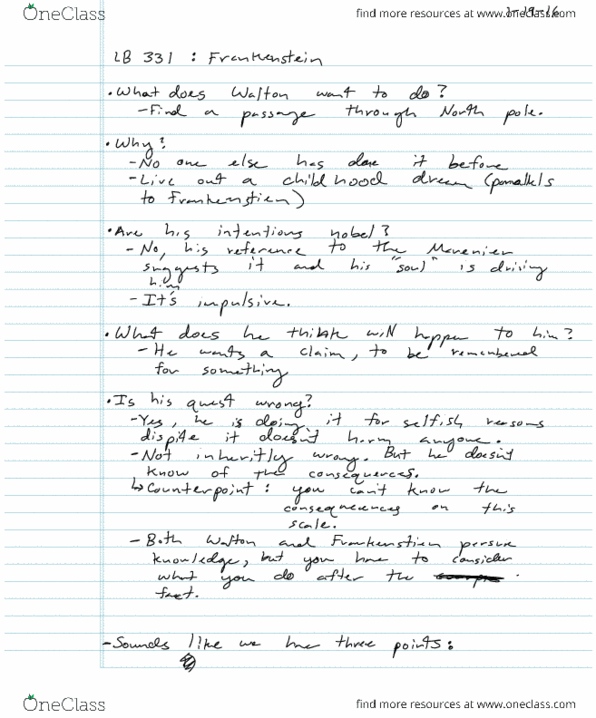 OneClass
find more resources at www.oneclass.com
1-19-16
LB 331 : Frankenstein
• What does Walton want to do?
- Find a passage through North pole.
• Why?
- No one else has done it before
- Live out a childhood dream (parallels
to Frankenstien)
• Are his intentions nobel?
- No, his reference to the
suggests it and his "soul" is driving
him
- It's impulsive.
• What does he think will happen to him?
- He wants a claim, to be remembered
for something
• Is his quest wrong?
- Yes, he is doing it for selfish reasons
dispite it doesn't harm anyone.
- Not inheritly wrong. But he doesn't
know of the consequences.
↳ Counterpoint : you can't know the
consequences on this
scale.
- Both Walton and Frankenstien persue
knowledge, but you have to consider
what you do after the .
fact.
- Sounds like we have three points:
OneClass
find more resources at www.oneclass.com